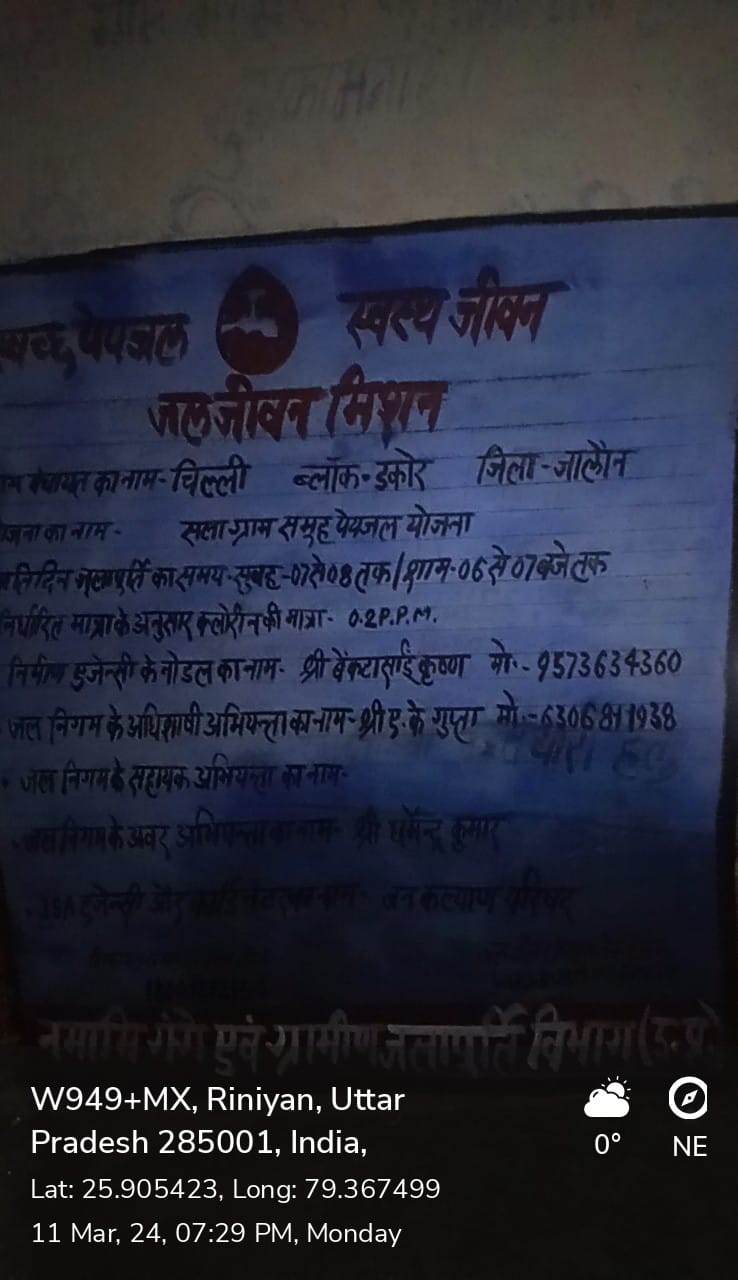 पेयजल स्वस्थ जीवन
जल जीवन मिशन
पंचायत का नाम- चिल्ली ब्लॉक- डकोर जिला- जालौन
का नाम- सला ग्राम समुह पेयजल योजना
प्रतिदिन जलापूर्ति का समय- सुबह-07 से 08 तक/शाम-06 से 07 बजे तक
निर्धारित मात्रा के अनुसार क्लोरीन की मात्रा- 0.2 P.P.M.
निर्माण एजेन्सी के नोडल का नाम- श्री वेंकटासाई कृष्ण मो.- 9573634360
जल निगम के अधिशाषी अभियन्ता का नाम- श्री ए. के गुप्ता मो.- 6306811938
जल निगम के सहायक अभियन्ता का नाम-
जल निगम के अवर अभियन्ता का नाम- श्री धर्मेन्द्र कुमार
ISA एजेन्सी का नाम- जन कल्याण परिषद
नमामि गंगे एवं ग्रामीण जलापूर्ति विभाग (उ.प्र.)
W949+MX, Riniyan, Uttar
Pradesh 285001, India,
0° NE
Lat: 25.905423, Long: 79.367499
11 Mar, 24, 07:29 PM, Monday